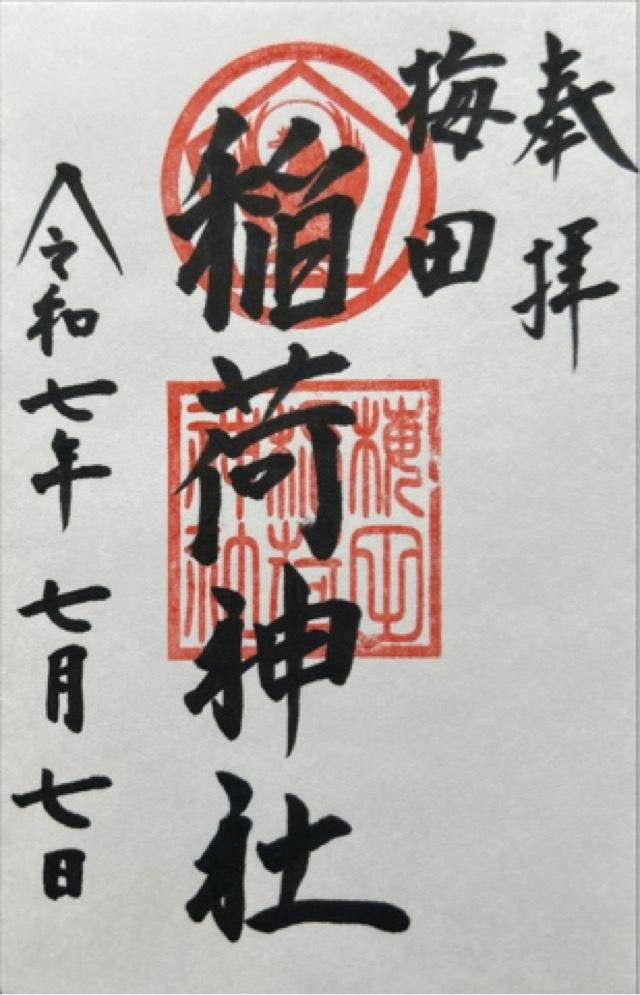 奉拝
梅田
稲荷神社
梅田
稲荷
神社
令和七年七月七日